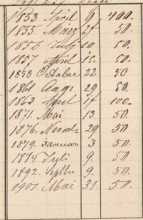 1853 April 9 400.
1855 März 27 50.
1856 Aug 10 50.
1857 April 15 50.
1858 October 22 20
1861 Aug. 29 50.
1863 April 17 100.
1871 Mai 13 50.
1876 29 50.
1879 Januar 3 50.
1884 Juli 9 50.
1892 9 50.
1901 Mai 31 50.